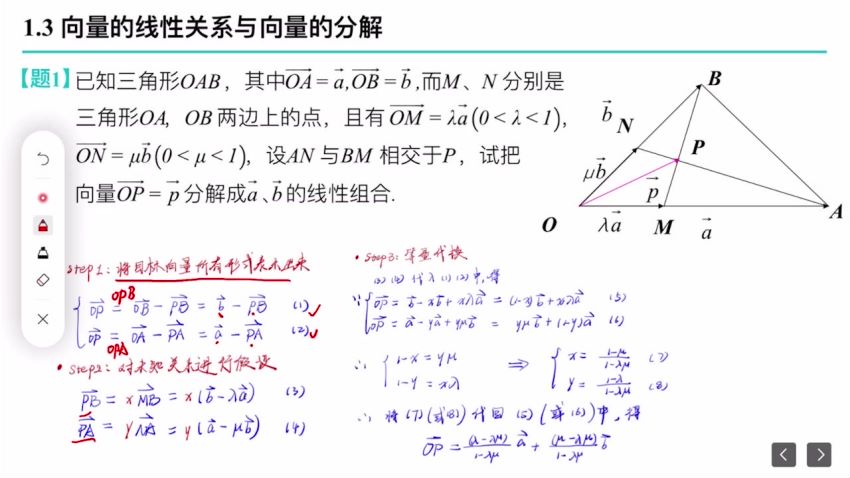 1.3 向量的线性关系与向量的分解
【题1】已知三角形OAB，其中$\overrightarrow{OA}=\vec{a}$,$\overrightarrow{OB}=\vec{b}$,而M、N 分别是
三角形OA，OB 两边上的点，且有 $\overrightarrow{OM}=λ\vec{a}$(0<λ<1)，
$\overrightarrow{ON}=μ\vec{b}$(0<μ<1)，设AN 与BM 相交于P，试把
向量$\overrightarrow{OP}=\vec{p}$ 分解成$\vec{a}$、$\vec{b}$的线性组合.
B
$\vec{b}$
N
P
$μ\vec{b}$
$\vec{p}$
O
$λ\vec{a}$
M
$\vec{a}$
A
step1：将目标向量所有形式表示出来
OPB
$\overrightarrow{OP}=\overrightarrow{OB}-\overrightarrow{PB}=\vec{b}-\overrightarrow{PB}$ (1)
$\overrightarrow{OP}=\overrightarrow{OA}-\overrightarrow{PA}=\vec{a}-\overrightarrow{PA}$ (2)
OPA
• step2：对未知关系进行假设
$\overrightarrow{PB}=x\overrightarrow{MB}=x(\vec{b}-λ\vec{a})$ (3)
$\overrightarrow{PA}=y\overrightarrow{NA}=y(\vec{a}-μ\vec{b})$ (4)
• step3：等量代换
(3)(4) 代入(1)(2)中,得
∵ $\overrightarrow{OP}=\vec{b}-x\vec{b}+xλ\vec{a}=(1-x)\vec{b}+xλ\vec{a}$ (5)
$\overrightarrow{OP}=\vec{a}-y\vec{a}+yμ\vec{b}=yμ\vec{b}+(1-y)\vec{a}$ (6)
∴ { 1-x=yμ ⇒ { x=$\frac{1-μ}{1-λμ}$ (7)
1-y=xλ y=$\frac{1-λ}{1-λμ}$ (8)
∴ 将(7)(或(8))代回(5)(或(6))中,得
$\overrightarrow{OP}=\frac{(λ-λμ)}{1-λμ}\vec{a}+\frac{(μ-λμ)}{1-λμ}\vec{b}$